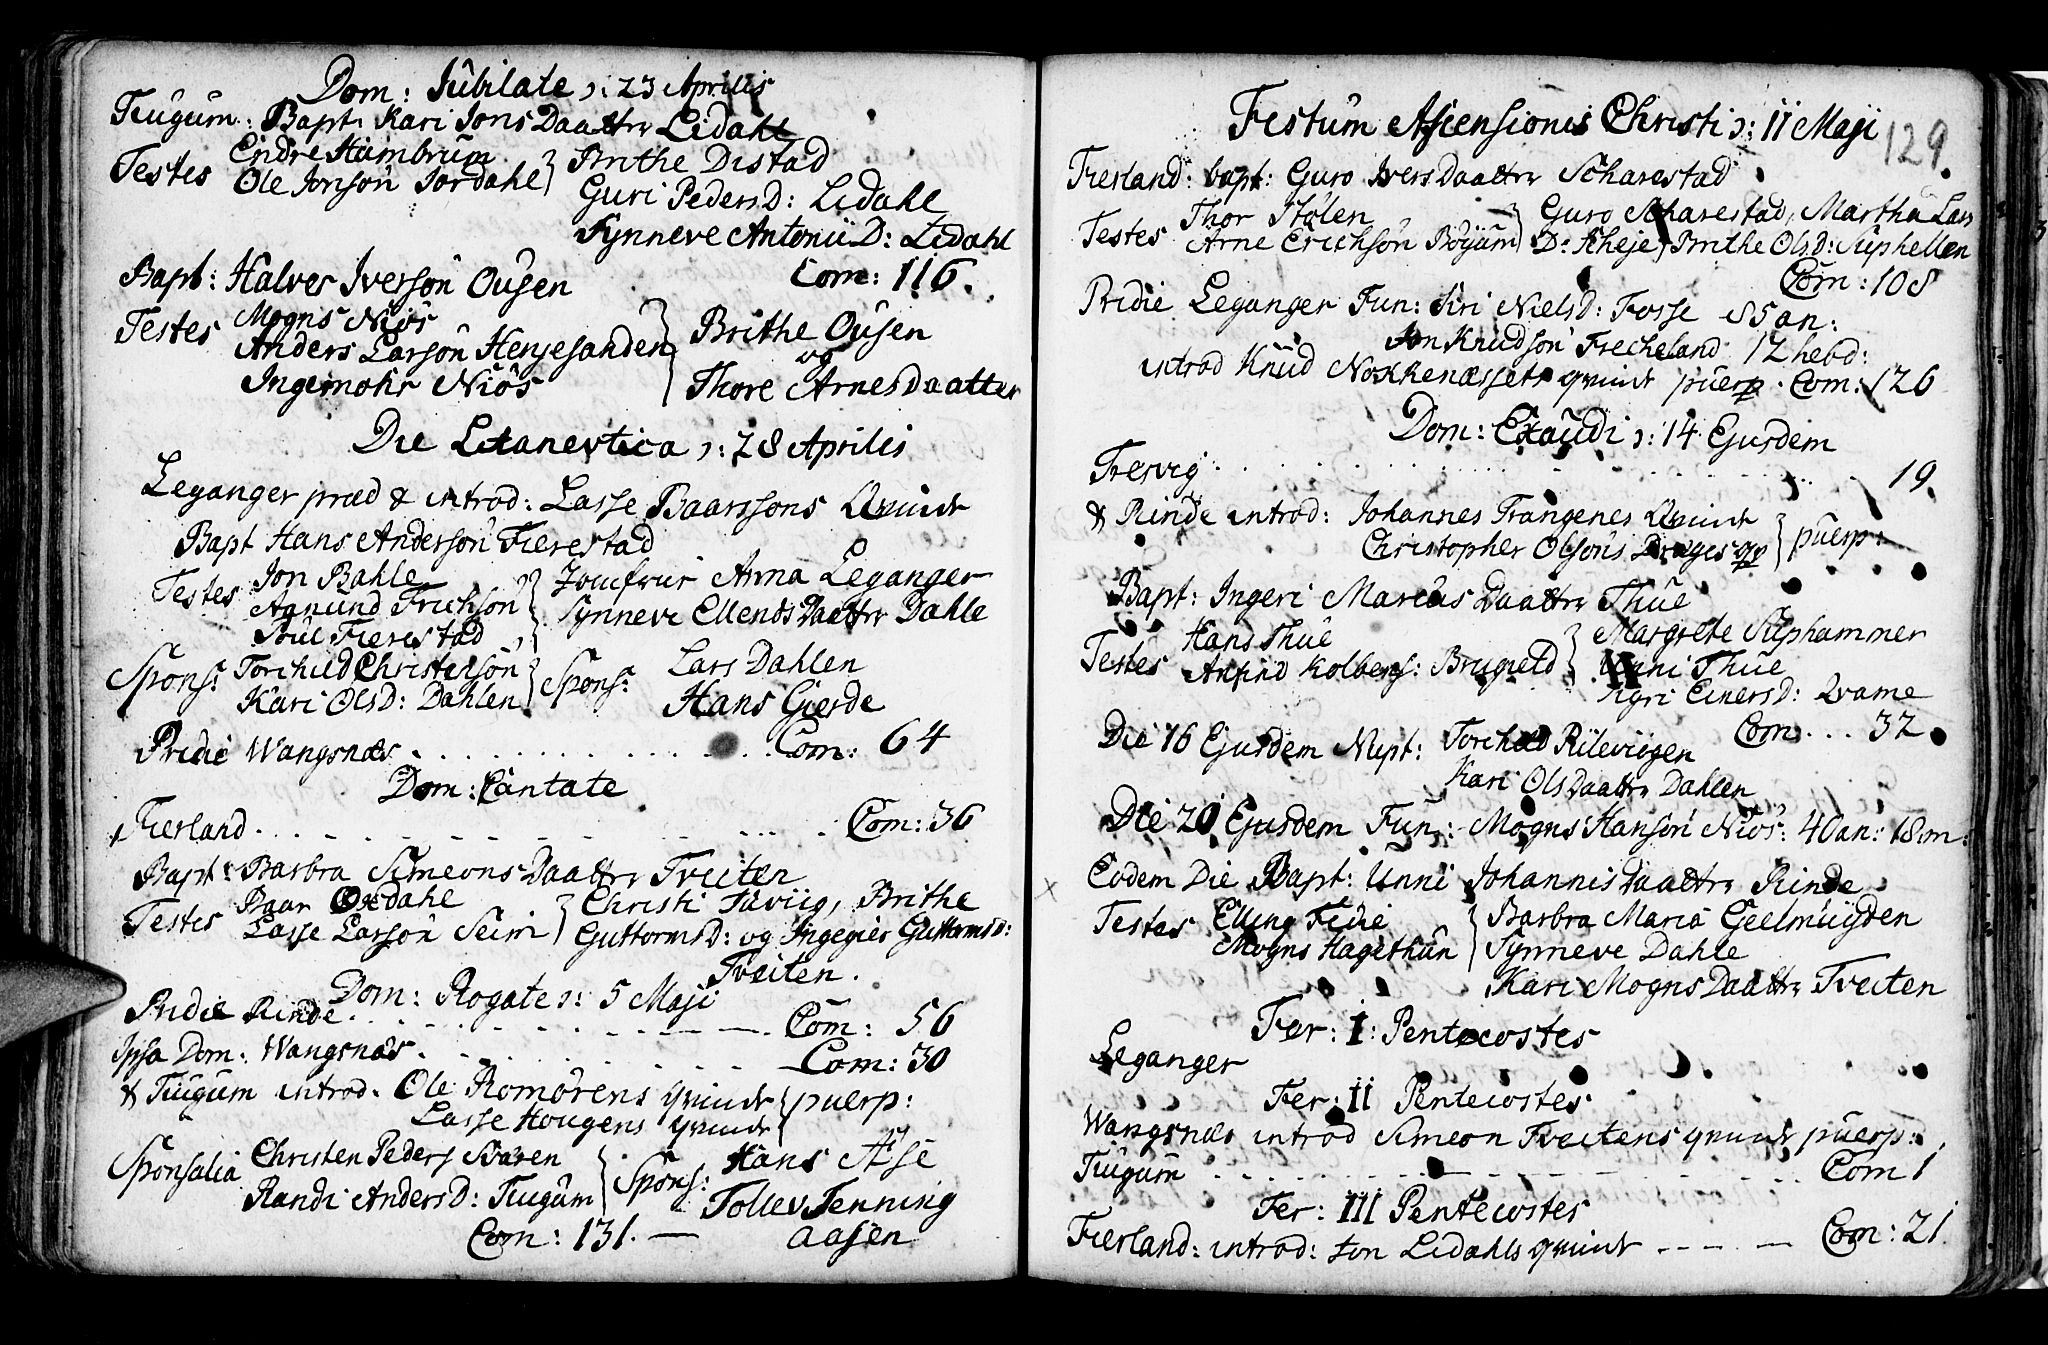 Dom: Jubilate ɔ: 23 Aprilis
Tiugum: Bapt: Kari Jons Daattr Lidahl
Testes Endre Hambrum } Brithe Distad
Ole Jonson Jordahl } Guri PedersD: Lidahl
Synneve Antonii D: Lidahl
Bapt: Halver Iverson Ousen Com: 116.
Testes Mogns Niøs } Brithe Ousen
Anders Larson Henjesanden } og
Ingemohr Niøs } Thore Arnesdaatter
Die Litanevtica ɔ: 28 Aprilis
Leganger præd & introd: Lasse Baarssons Qvinde
Bapt Hans Anderson Fierestad
Testes Jon Bahle } Jomfrue Anna Leganger
Agmund Frichson } Synneve Ellends Daattr Dahle
Poul Fierestad }
Spons: Torchild Christenson } Spons: Lars Dahlen
Kari OlsD: Dahlen } Hans Gierde
Pridie Wangsnæs . . . . . . Com: 64
Dom: Cantate
Fierland . . . . . . Com: 36
Bapt: Barbra Simeons Daattr Tveiten
Testes Baar Oxdahl } Christi Juviig, Brithe
Lasse Larson Seim } GuttormsD: og Ingegier Guttormsd:
Tveiten.
Dom: Rogate ɔ: 5 Maji
Pridie Rinde . . . . . . Com: 56
Ipsa Dom: Wangsnæs . . . . . . Com: 30
& Tiugum introd. Ole Romørens qvinde } puerp:
Lasse Hougens qvinde
Sponsalia Christen Peders Sværen } Spons: Hans Aase
Randi AndersD: Tiugum } Tollev Jenning
Com: 131. — aasen
129.
Festum Ascensionis Christi ɔ: 11 Maji
Fierland: bapt: Guro Ivers Daattr Scharestad
Testes Thor Stølen } Guro Scharestad, Martha Lars
Arne Erichson Bøyum } D: Kheje, Brithe Olsd: Suphellen
Com: 108
Pridie Leganger Fun: Siri Nielsd: Fosse 85 an:
Jon Knudson Frecheland 12 hebd:
introd Knud Nokkenæssets qvinde puerp. Com: 126
Dom: Exaudi ɔ: 14 Ejusdem
Fresvig . . . . . . 19.
& Rinde introd: Johannes Trangenes Qvinde } puerp:
Christopher Olsøns Drages qv }
Bapt: Ingeri Marcus Daattr Thue
Testes Hans Thue } Margrete Suphammer
Anfind Kolbens: Brugield } Unni Thue
Sigri Einersd: Qvame
Com: . . . 32
Die 16 Ejusdem Nupt: Torchild Rileviigen
Kari Olsdaattr Dahlen
Die 20 Ejusdem Fun: Mogns Hanson Niøs: 40 an: 18 m:
Eodem Die Bapt: Unni Johannis daattr Rinde
Testes Elling Feidie } Barbra Maria Geelmuyden
Mogns Hagethun } Synneve Dahle
Kari Mogns Daattr Tveiten
Fer: I: Pentecostes
Leganger
Fer: II Pentecostes
Wangsnæs introd Simeon Tveitens qvinde puerp:
Tiugum . . . . . . Com 1
Fer: III Pentecostes
Fierland: introd: Jon Lidahls qvinde - - - - Com: 21